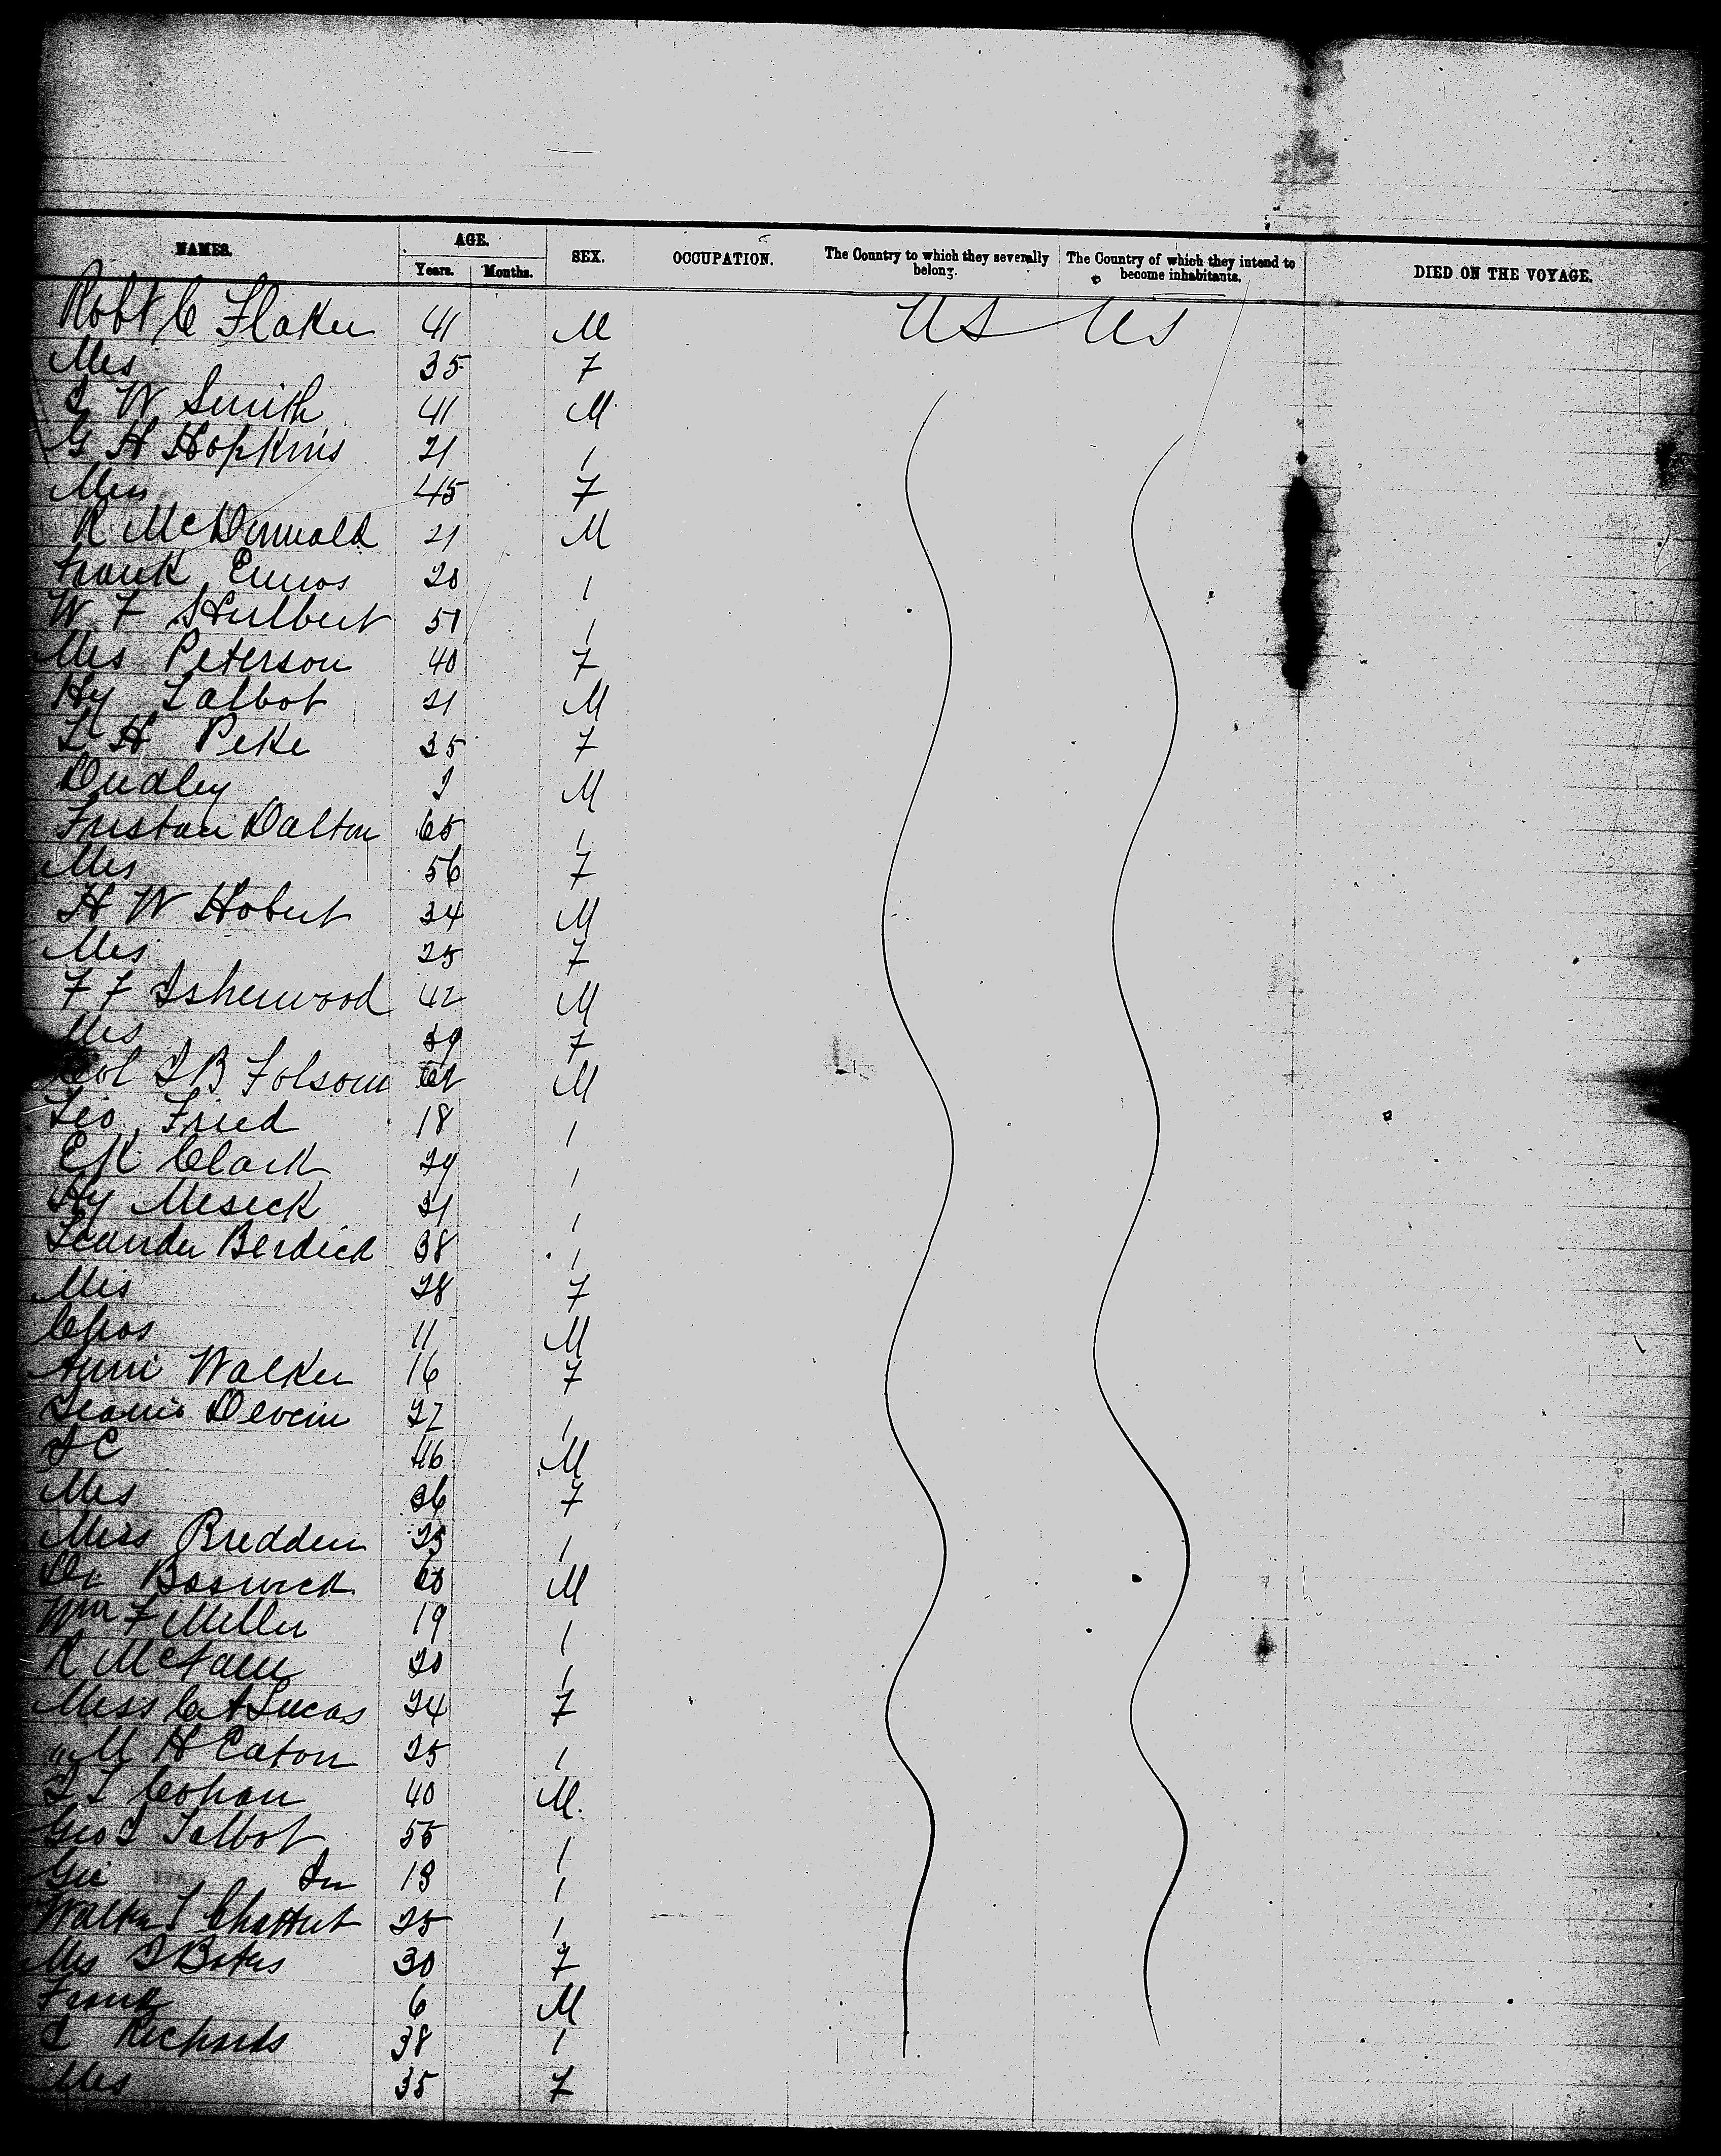 NAMES. AGE. SEX. OCCUPATION. The Country to which they severally belong. The Country of which they intend to become inhabitants. DIED ON THE VOYAGE.
Years. Months.
Robt C Flaker 41 M US US
Mrs 35 F
J W Smith 41 M
G H Hopkins 21 1
Mrs 45 F
R McDonnald 21 M
Frank Ennos 20 1
W F Hulbert 51 1
Mrs Peterson 40 F
Hy Talbot 21 M
L H Peke 35 F
Dudley 2 M
Tristan Dalton 65 1
Mrs 56 F
H W Hobert 34 M
Mrs 25 F
F F Isherwood 42 M
Mrs 39 F
Col J B Folsom M
Leo Fried 18 1
E K Clark 29 1
Hy Meseck 31 1
Leander Berdick 38 1
Mrs 28 F
Chas 11 M
Anni Walker 16 F
Devein 27 1
J C 46 M
Mrs 36 F
Miss Bredden 23 1
Dr Boswick 60 M
Wm F Miller 19 1
R 20 1
Miss C A Lucas 24 F
" M H Eaton 25 1
J L Cohan 40 M
Geo J Talbot 55 1
Geo Jn 13 1
Walter J 25 1
Mrs J Bates 30 F
Frank 6 M
J Richards 38 1
Mrs 35 F